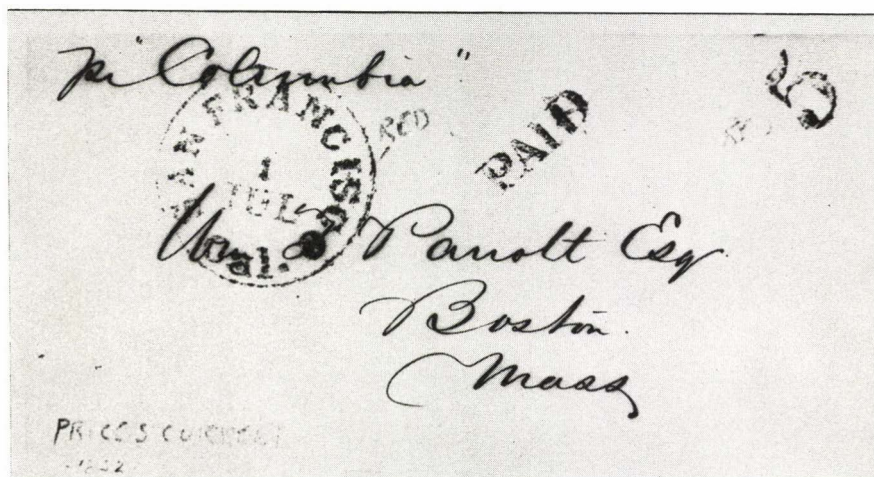 pr "Columbia"
SAN FRANCISCO
1
JUL
Cal.
RED
PAID
RED
5
Wm. F. Parrott Esq
Boston.
Mass
PRICES CURRENT
1852